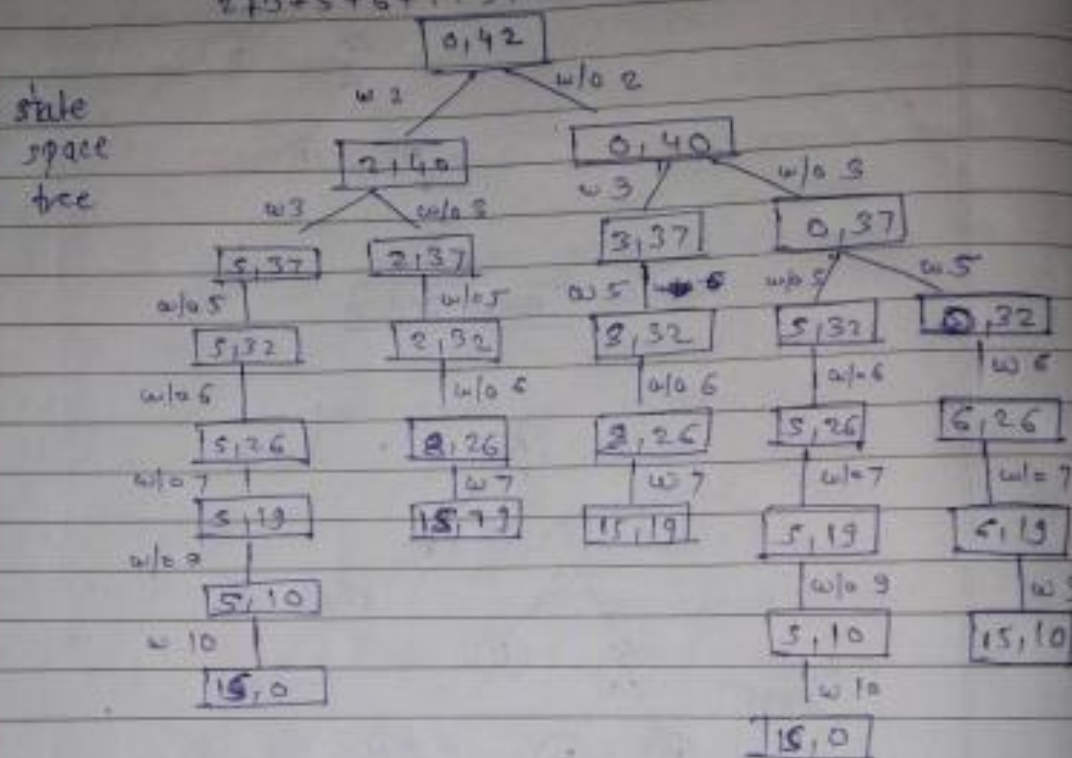 0,42
w 2 w/o 2
state
space
tree
2,40 0,40
w3 w/o 3 w 3 w/o 3
5,37 2,37 3,37 0,37
w/o 5 w/o 5 w 5 w/o 5 w 5
5,32 2,32 8,32 5,32 0,32
w/o 6 w/o 6 w/o 6 w/o 6 w 6
5,26 8,26 8,26 5,26 6,26
w/o 7 w 7 w 7 w/o 7 w/o 7
5,19 15,19 15,19 5,19 6,19
w/o 9 w/o 9 w 9
5,10 5,10 15,10
w 10 w 10
15,0 15,0